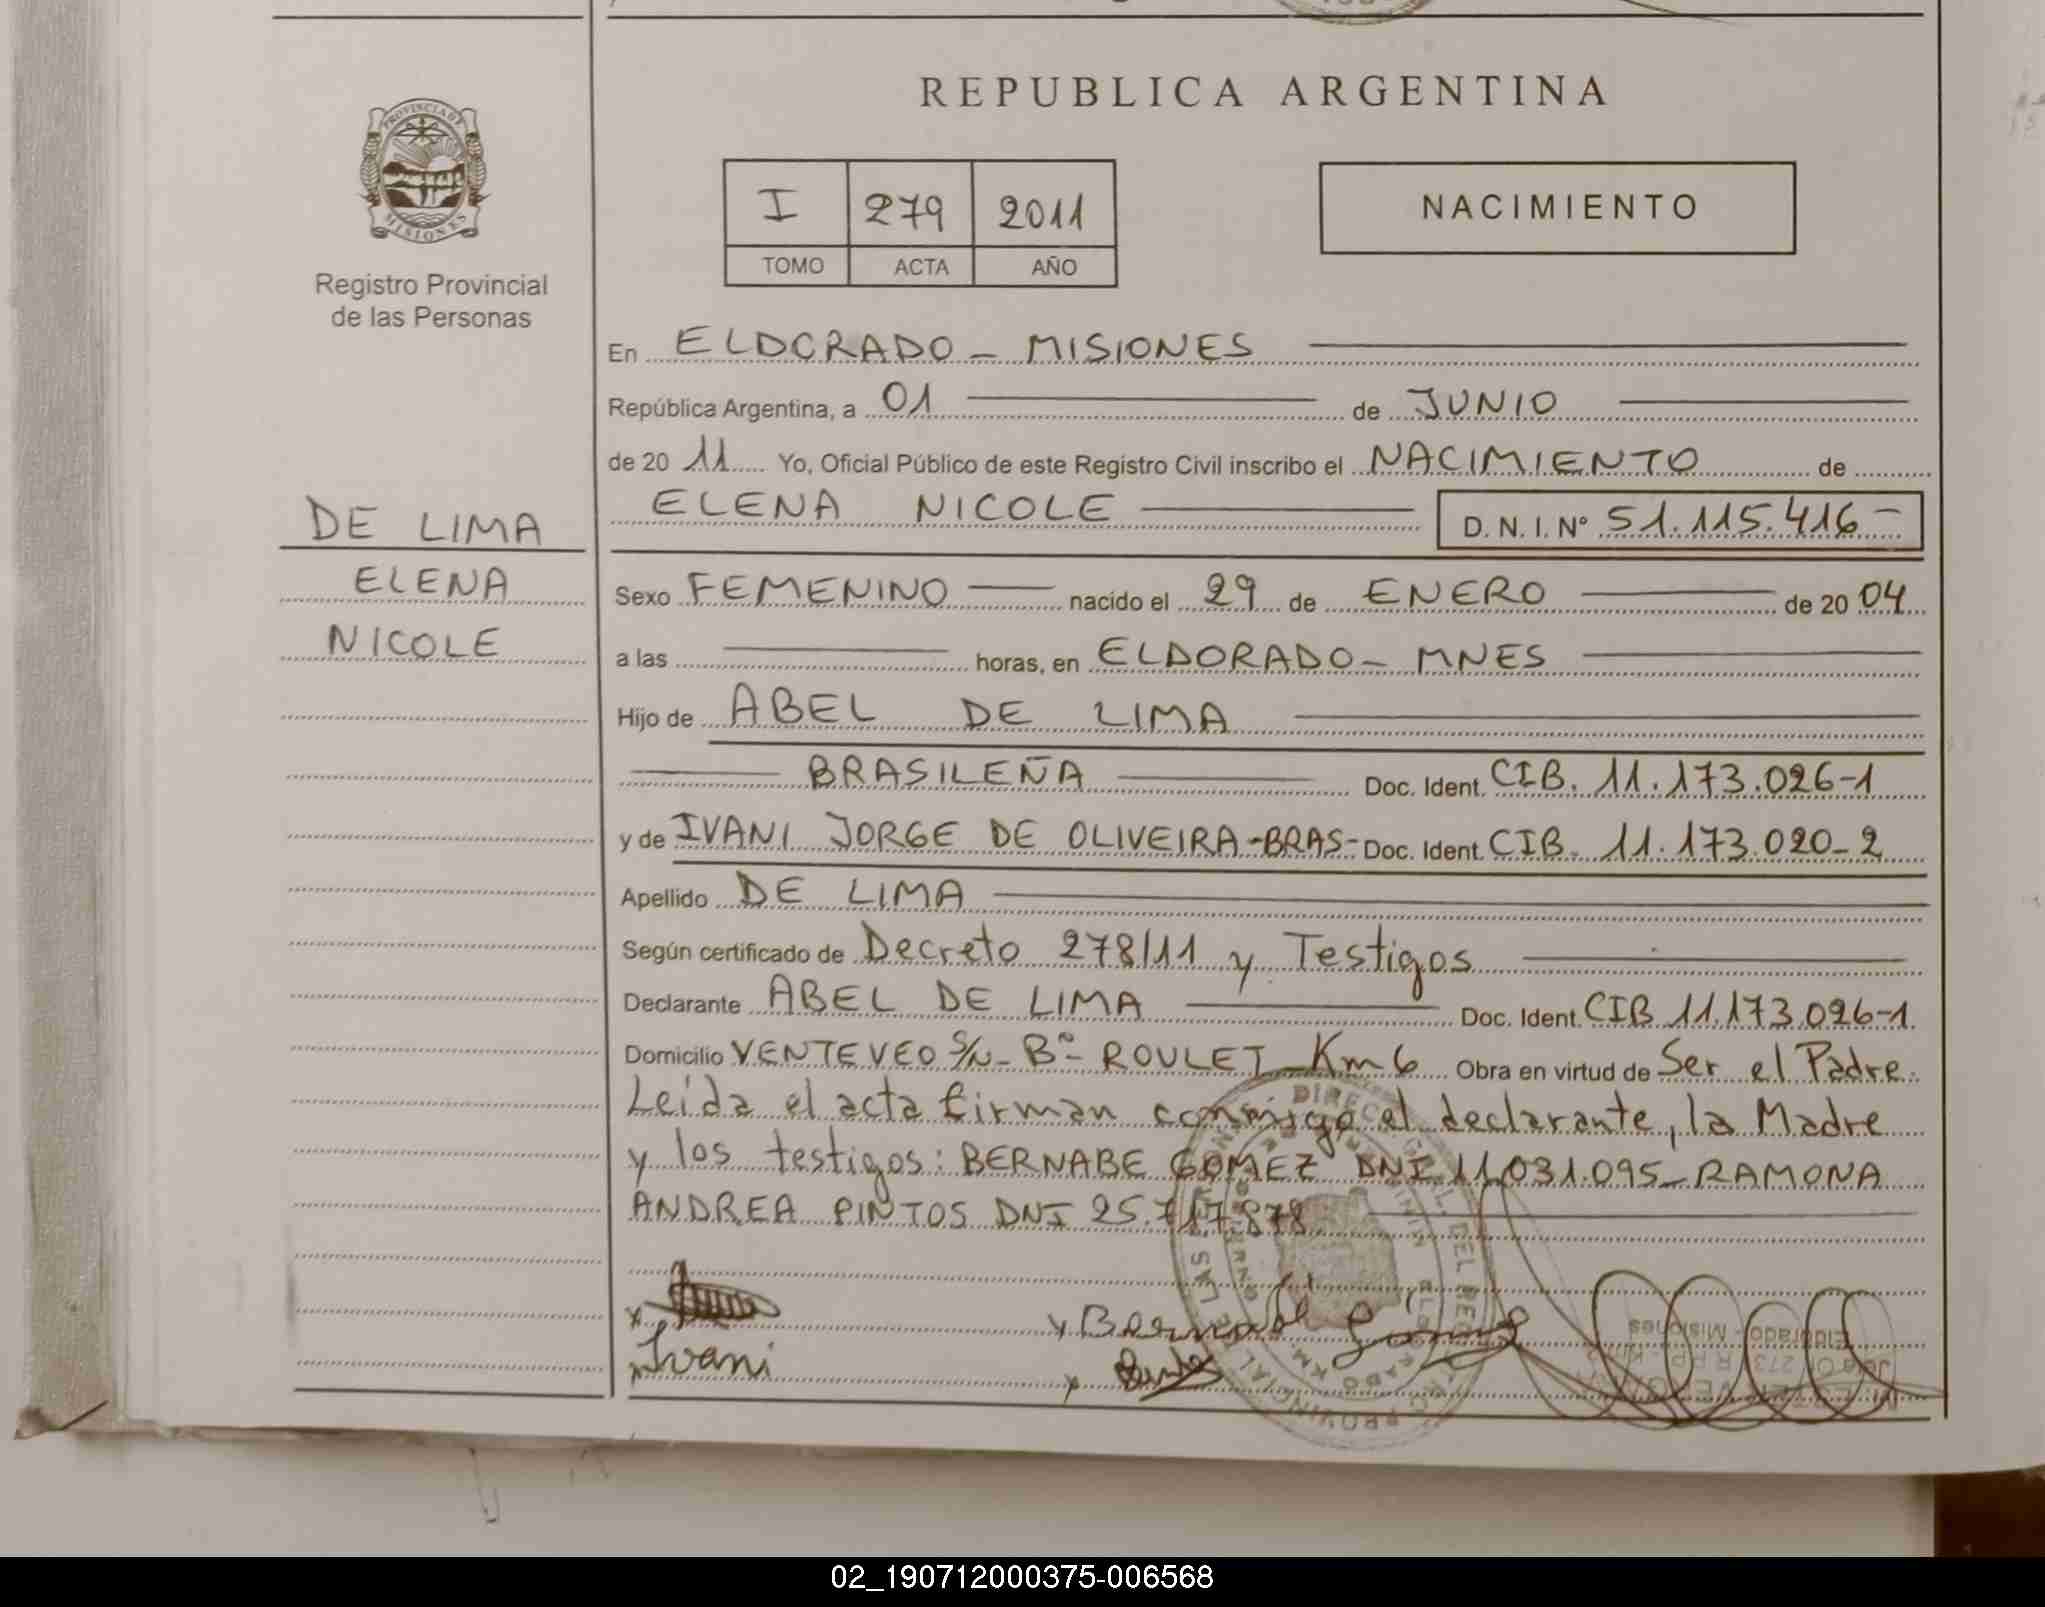 REPUBLICA ARGENTINA
PROVINCIA DE
MISIONES
Registro Provincial
de las Personas
I 279 2011
TOMO ACTA AÑO
NACIMIENTO
En ELDORADO - MISIONES
República Argentina, a 01 de JUNIO
de 20 11 Yo, Oficial Público de este Registro Civil inscribo el NACIMIENTO de
ELENA NICOLE D. N. I. Nº 51.115.416-
DE LIMA
ELENA
NICOLE
Sexo FEMENINO nacido el 29 de ENERO de 20 04
a las horas, en ELDORADO - MNES
Hijo de ABEL DE LIMA
BRASILEÑA Doc. Ident. CIB. 11.173.026-1
y de IVANI JORGE DE OLIVEIRA-BRAS- Doc. Ident. CIB. 11.173.020-2
Apellido DE LIMA
Según certificado de Decreto 278/11 y Testigos
Declarante ABEL DE LIMA Doc. Ident. CIB 11.173.026-1
Domicilio VENTEVEO S/N- Bº- ROULET Km 6 Obra en virtud de Ser el Padre.
Leída el acta firman conmigo el declarante, la Madre
y los testigos: BERNABE GOMEZ DNI 11.031.095- RAMONA
ANDREA PINTOS DNI 25.717.878
x
x Ivani
x Bernabe Gomez
x
Eldorado - Misiones
02_190712000375-006568